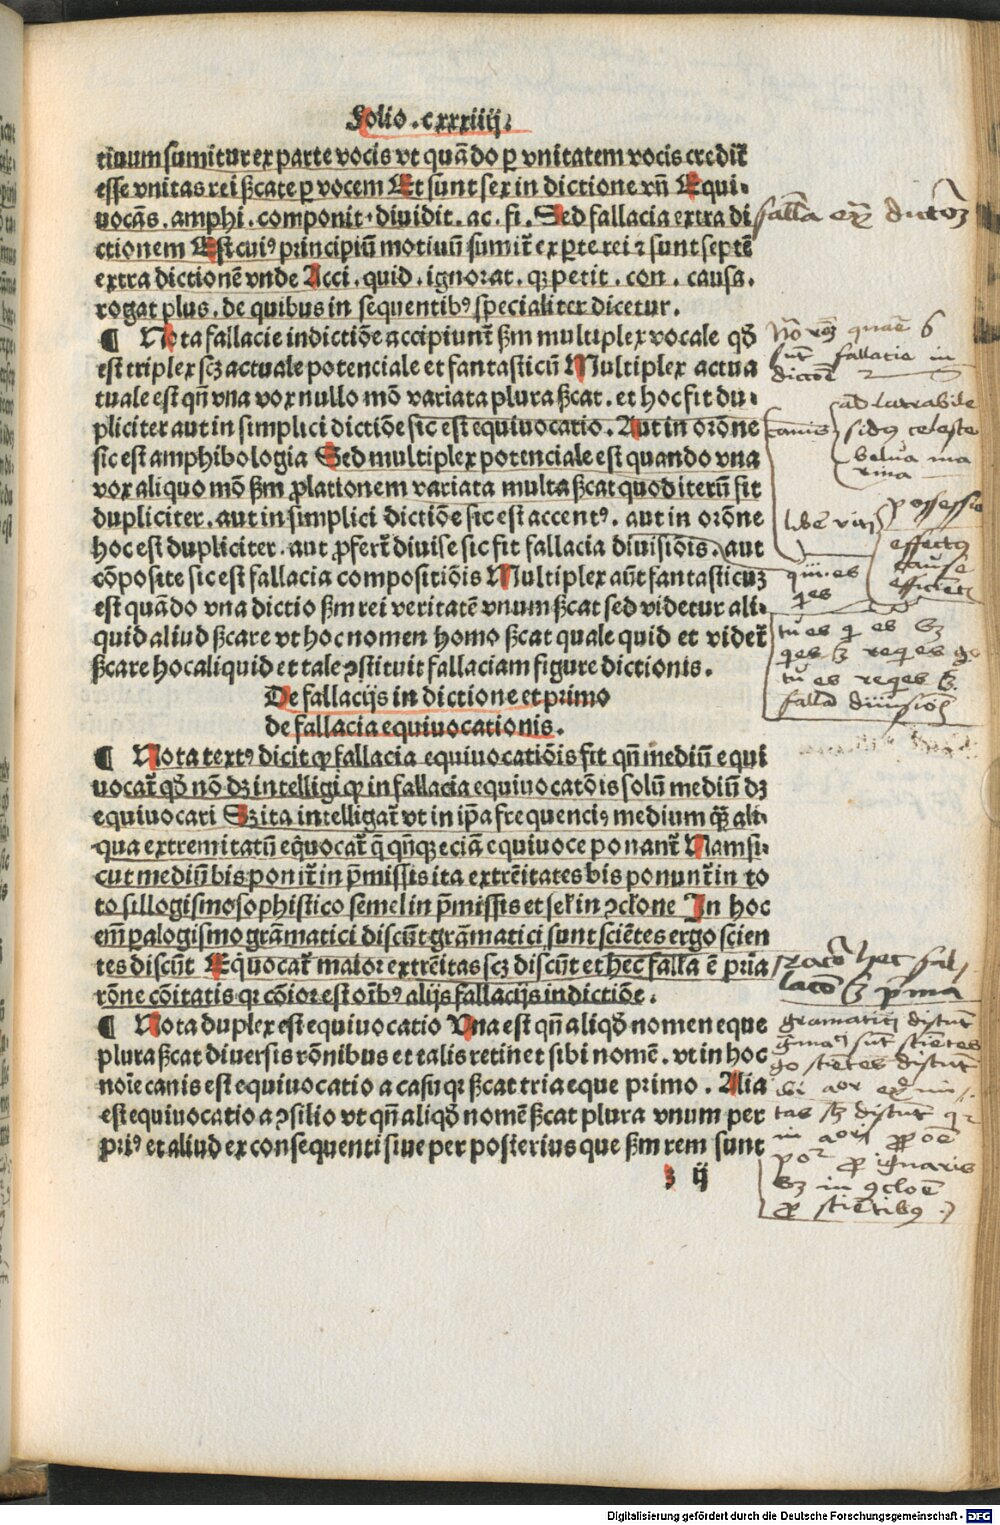 Folio. cxxxiiij.
tiuum sumitur ex parte vocis vt quādo ꝑ vnitatem vocis credit᷑
esse vnitas rei ẞcate ꝑ vocem Et sunt sex in dictione vñ Equi⸗
uocãs. amphi. componit. diuidit. ac. fi. Sed fallacia extra di
ctionem Est cuiꝰ principiũ motiuũ sumit᷑ ex ꝑte rei ⁊ sunt septē
extra dictionē vnde Acci. quid. ignorat. qꝫ petit. con. causa.
rogat plus. de quibus in sequentibꝰ specialiter dicetur.
¶ Nota fallacie indictiōe accipiunt᷑ ẞm multiplex vocale qď
est triplex scꝫ actuale potenciale et fantasticũ Multiplex actua
tuale est qñ vna vox nullo mō variata plura ẞcat. et hoc fit du⸗
pliciter aut in simplici dictiōe sic est equiuocatio. Aut in orōne
sic est amphibologia Sed multiplex potenciale est quando vna
vox aliquo mō ẞm ꝓlationem variata multa ẞcat quod iterũ fit
dupliciter. aut in simplici dictiōe sic est accentꝰ. aut in orōne
hoc est dupliciter. aut ꝓfert᷑ diuise sic fit fallacia diuisiōis. aut
cōposite sic est fallacia compositiōis Multiplex aũt fantasticuꝫ
est quādo vna dictio ẞm rei veritatē vnum ẞcat sed videtur ali⸗
quid aliud ẞcare vt hoc nomen homo ẞcat quale quid et videt᷑
ẞcare hoc aliquid et tale ꝯstituit fallaciam figure dictionis.
De fallacijs in dictione et primo
de fallacia equiuocationis.
¶ Nota textꝰ dicit ꝙ fallacia equiuocatiōis fit qñ mediũ equi
uocat᷑ qď nō dꝫ intelligi ꝙ in fallacia equiuocatōis solũ mediũ dꝫ
equiuocari Sꝫ ita intelligat᷑ vt in ip̄a frequenciꝰ medium ꝙ̃ ali⸗
qua extremitatũ eq̄uocat᷑ q̄ qñqꝫ eciã equiuoce ponant᷑ Nam si⸗
cut mediũ bis ponit᷑ in p̄missis ita extrēitates bis ponunt᷑ in to
to sillogismo sophistico semel in p̄missis et seƚ in ꝯcƚone In hoc
em̄ ꝑalogismo grãmatici discũt grãmatici sunt sciētes ergo scien
tes discũt Eq̄uocat᷑ maior extrēitas scꝫ discũt et hec falƚa ē pria
rōne cōitatis qꝛ cōior est oībꝰ alijs fallacijs in dictiōe.
¶ Nota duplex est equiuocatio Vna est qñ aliqď nomen eque
plura ẞcat diuersis rōnibus et talis retinet sibi nomē. vt in hoc
noīe canis est equiuocatio a casu qꝛ ẞcat tria eque primo. Alia
est equiuocatio a ꝯsilio vt qñ aliqď nomē ẞcat plura vnum per
priꝰ et aliud ex consequenti siue per posterius que ẞm rem sunt
z ij
fallacia in
dictōe
canis
latrabile
sidꝰ celeste
belua ma
rina
possessio
effectꝰ
cause
tu es q es
tu es
grãmatici discũt
grãmatici sũt sciētes
go sciētes discũt
Digitalisierung gefördert durch die Deutsche Forschungsgemeinschaft - DFG